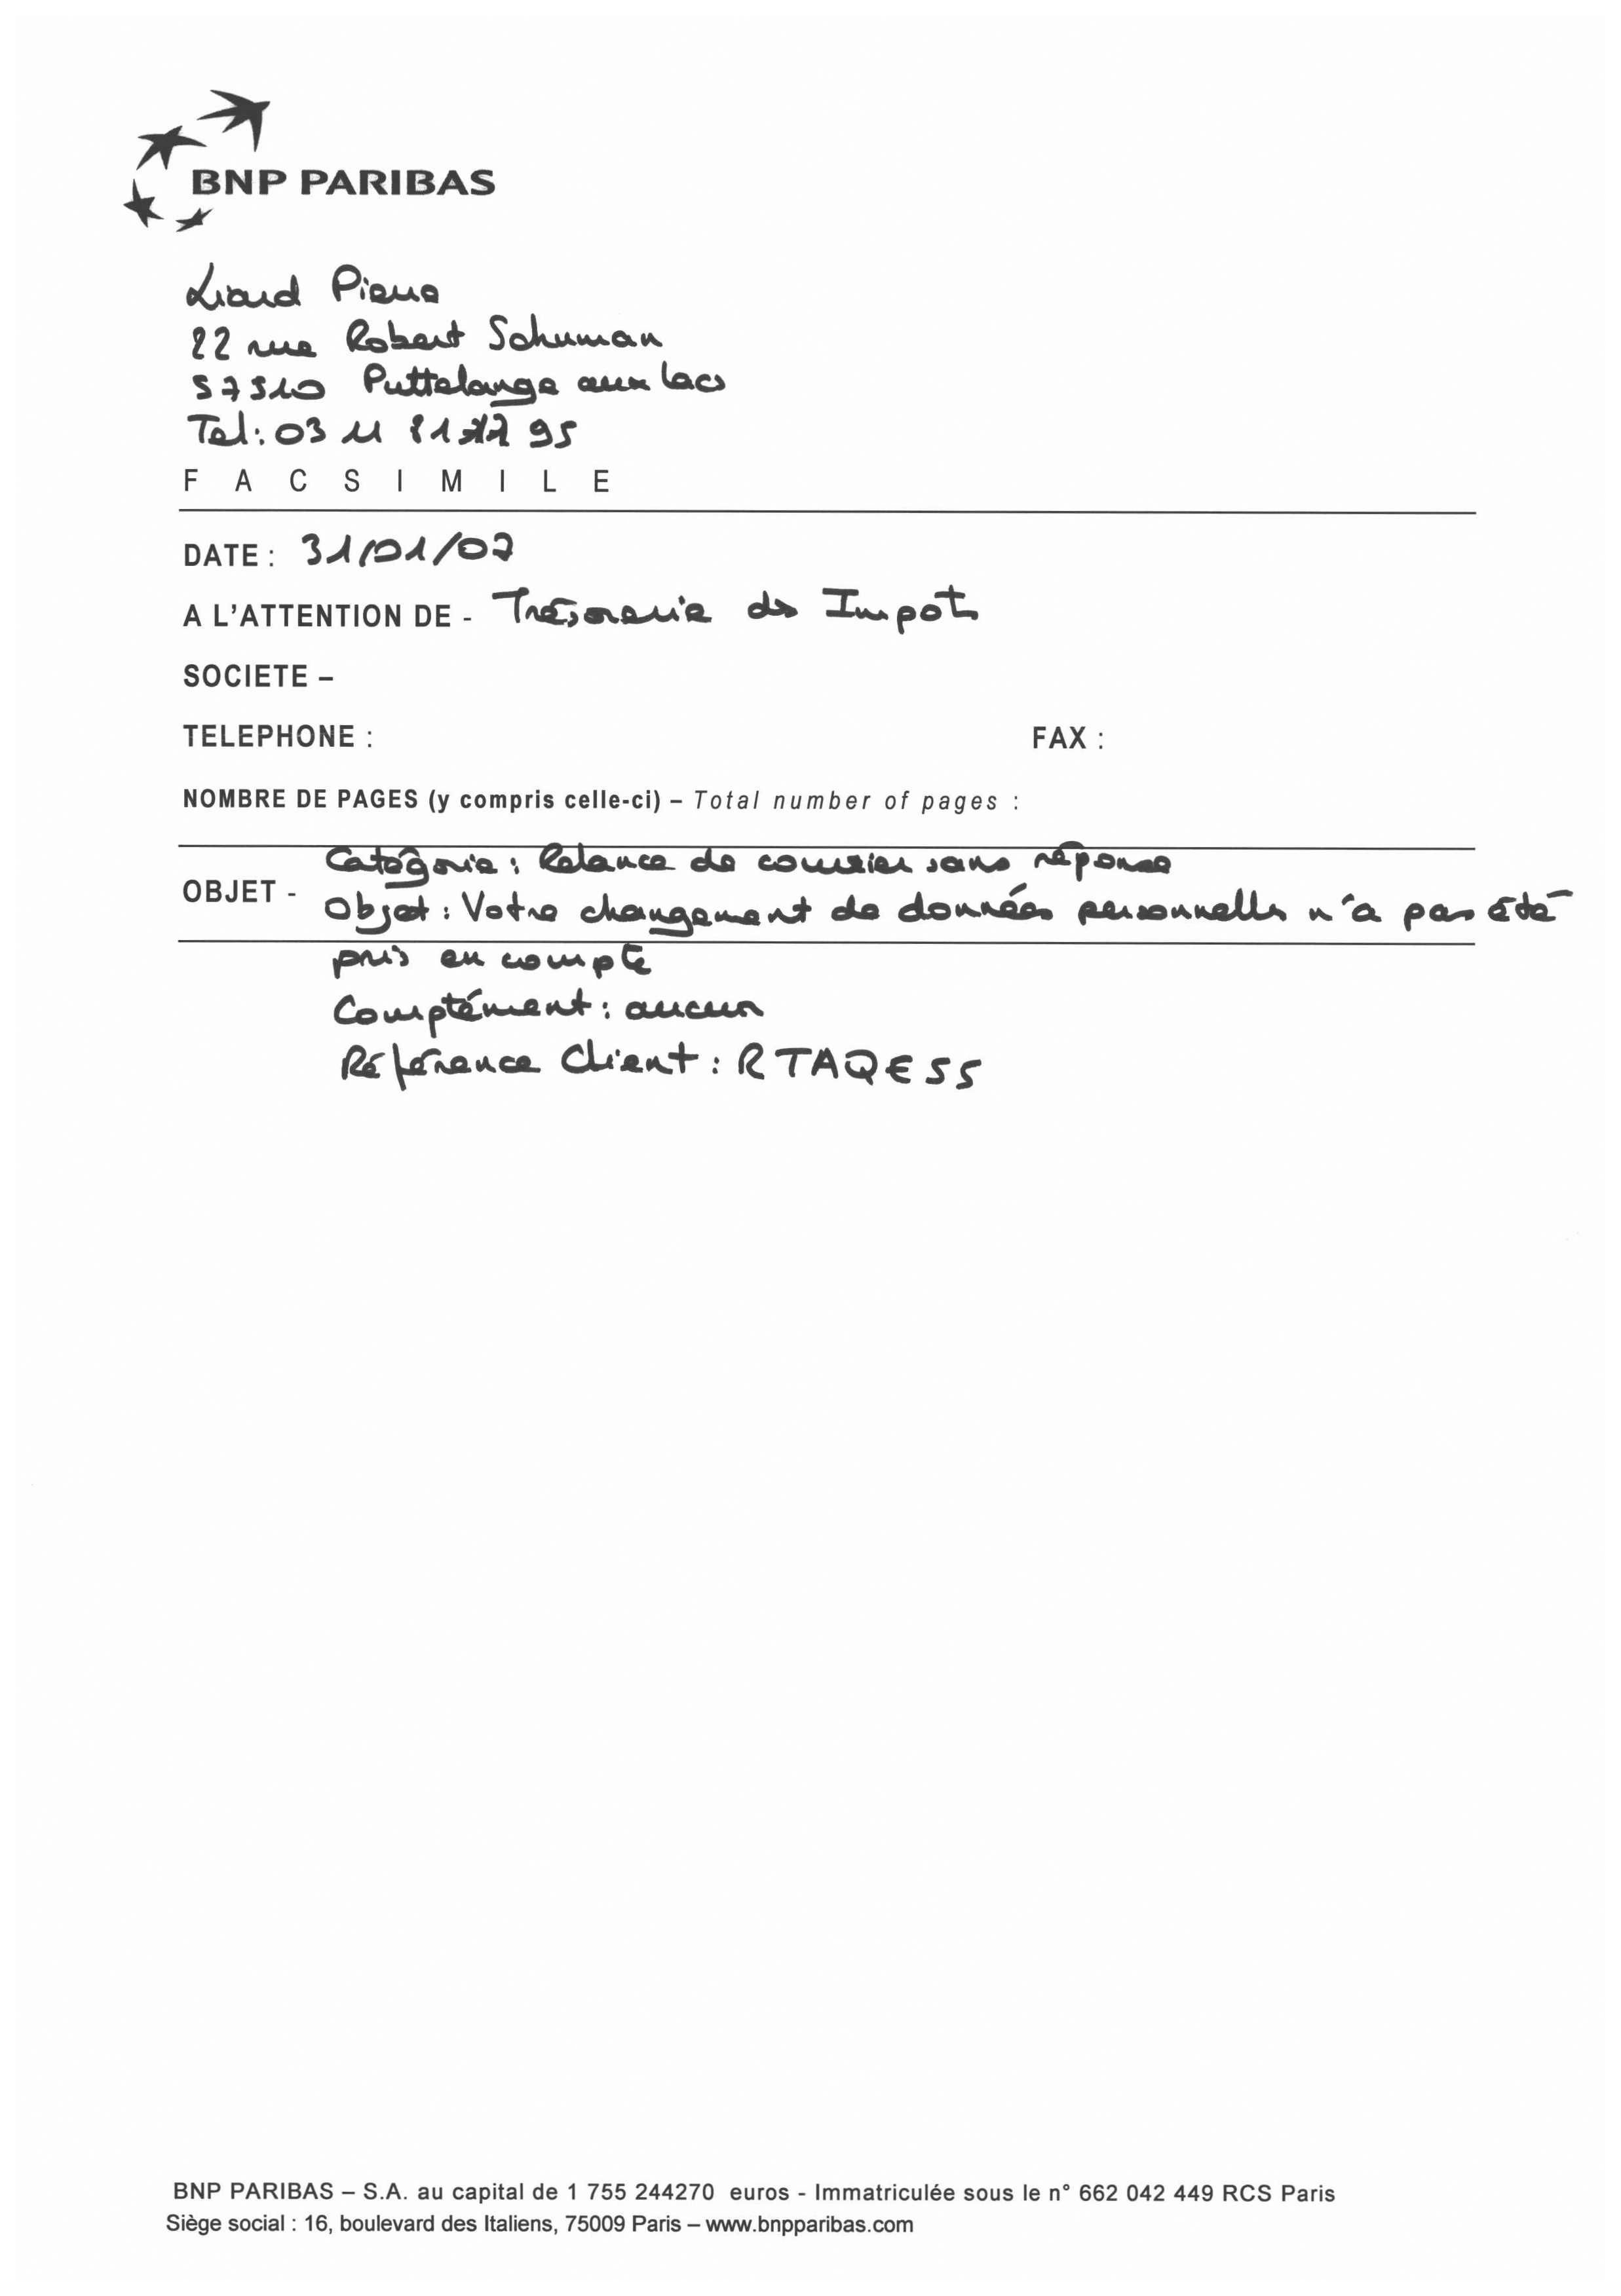 BNP PARIBAS
Liard Pierre
22 rue Robert Schuman
57510 Puttelange aux lacs
Tel: 03 11 81 95
F A C S I M I L E
DATE : 31/01/07
A L'ATTENTION DE - Trésorerie des Impots
SOCIETE –
TELEPHONE : FAX :
NOMBRE DE PAGES (y compris celle-ci) – Total number of pages :
Catégorie : Relance de courrier sans réponse
OBJET - Objet : Votre changement de données personnelles n'a pas été
pris en compte
Complément : aucun
Référence Client : RTAQE55
BNP PARIBAS – S.A. au capital de 1 755 244270 euros - Immatriculée sous le n° 662 042 449 RCS Paris
Siège social : 16, boulevard des Italiens, 75009 Paris – www.bnpparibas.com